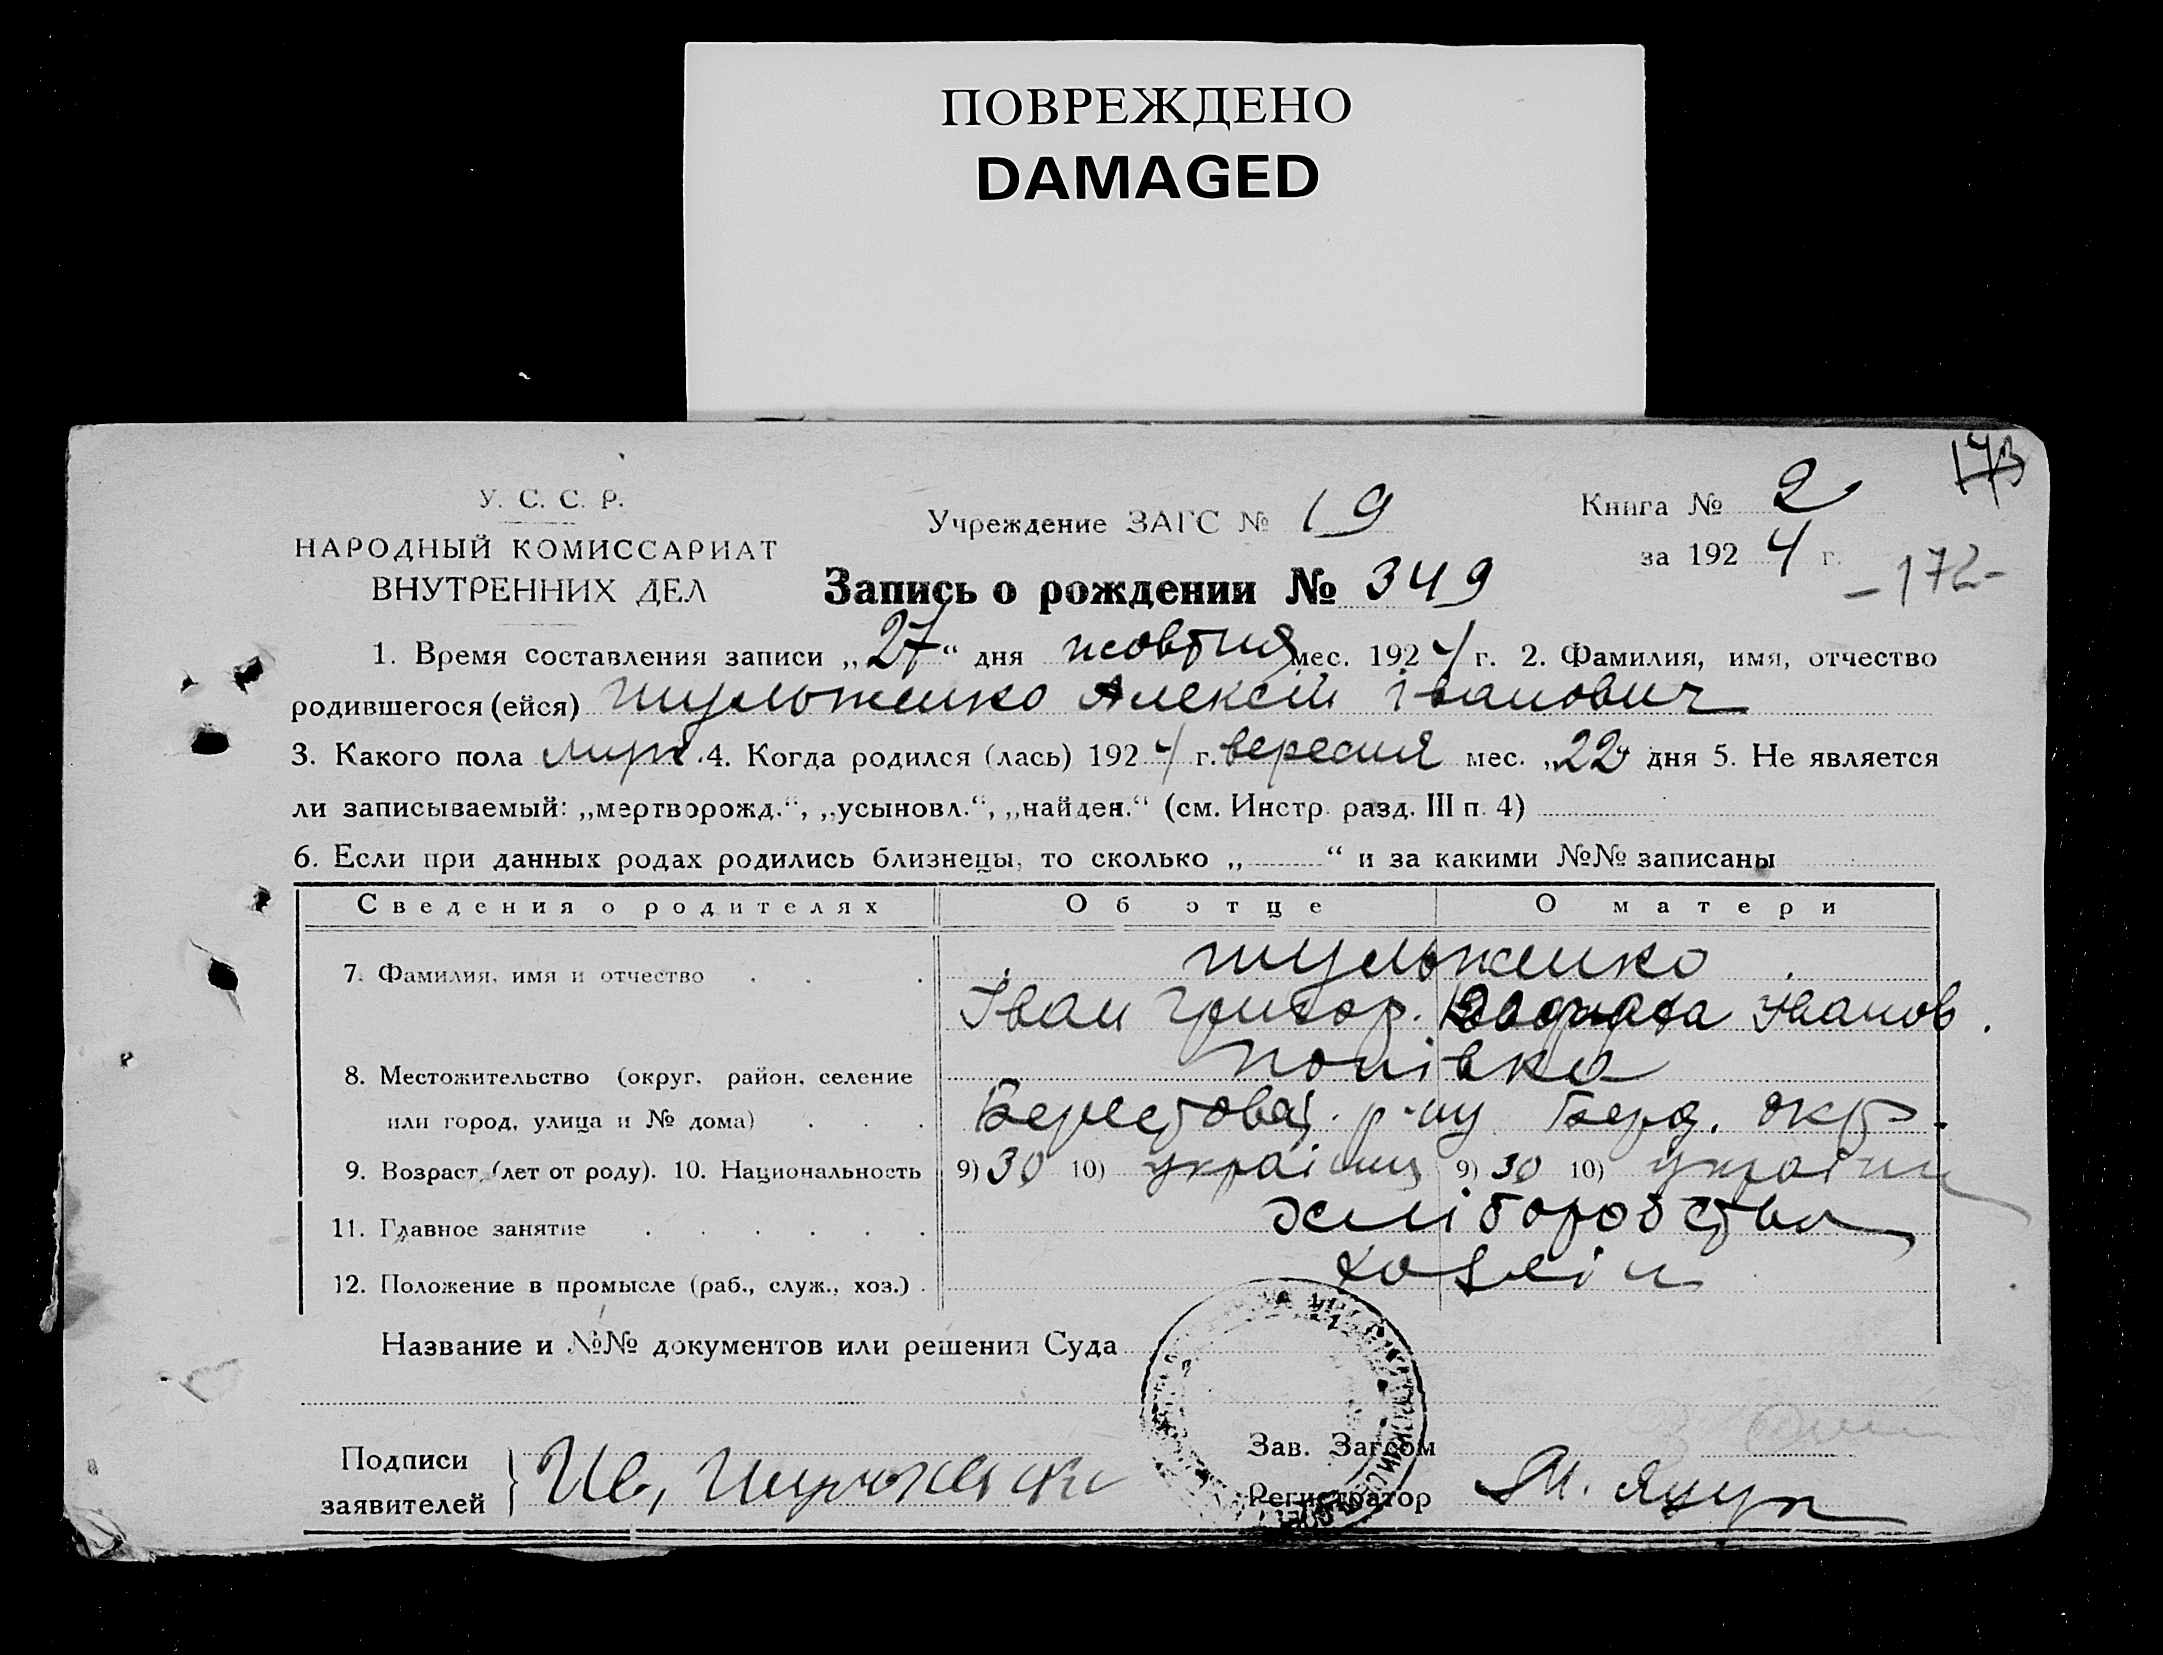 ПОВРЕЖДЕНО
DAMAGED
173
У. С. С. Р.
НАРОДНЫЙ КОМИССАРИАТ
ВНУТРЕННИХ ДЕЛ
Учреждение ЗАГС № 19
Книга № 2
за 1924 г.
-172-
Запись о рождении № 349
1. Время составления записи „27“ дня жовтня мес. 1924 г. 2. Фамилия, имя, отчество
родившегося (ейся) Шульженко Алексій Іванович
3. Какого пола муж. 4. Когда родился (лась) 1924 г. вересня мес. „22“ дня 5. Не является
ли записываемый: „мертворожд.“, „усыновл.“, „найден.“ (см. Инстр. разд. III п. 4)
6. Если при данных родах родились близнецы, то сколько „ “ и за какими №№ записаны
Сведения о родителях Об отце О матери
7. Фамилия, имя и отчество Шульженко
Іван Григор. Іванов.
8. Местожительство (округ, район, селение Попівка
или город, улица и № дома) Берестовец. р-ну Берд. окр.
9. Возраст (лет от роду). 10. Национальность 9) 30 10) українц 9) 30 10) україн
11. Главное занятие хліборобство
12. Положение в промысле (раб., служ., хоз.) хозяін
Название и №№ документов или решения Суда
Подписи
заявителей Ив, Шулженко
Зав. Загсом
Регистратор М. Яцун